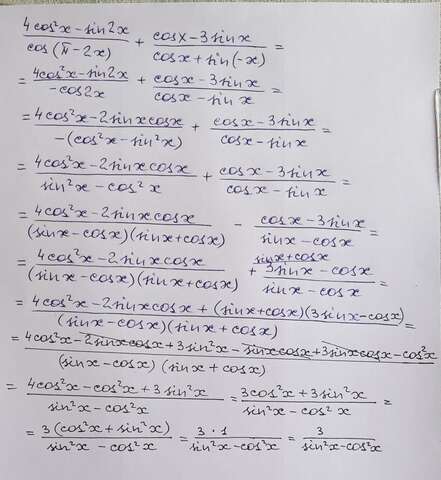 (4cos²x - sin2x)/(cos(π-2x)) + (cosx - 3sinx)/(cosx + sin(-x)) =
= (4cos²x - sin2x)/(-cos2x) + (cosx - 3sinx)/(cosx - sinx) =
= (4cos²x - 2sinxcosx)/(-(cos²x - sin²x)) + (cosx - 3sinx)/(cosx - sinx) =
= (4cos²x - 2sinxcosx)/(sin²x - cos²x) + (cosx - 3sinx)/(cosx - sinx) =
= (4cos²x - 2sinxcosx)/((sinx - cosx)(sinx + cosx)) - (cosx - 3sinx)/(sinx - cosx) =
= (4cos²x - 2sinxcosx)/((sinx - cosx)(sinx + cosx)) + sinx+cosx (3sinx - cosx)/(sinx - cosx) =
= (4cos²x - 2sinxcosx + (sinx + cosx)(3sinx - cosx))/((sinx - cosx)(sinx + cosx)) =
= (4cos²x - 2sinxcosx + 3sin²x - sinxcosx + 3sinxcosx - cos²x)/((sinx - cosx)(sinx + cosx))
= (4cos²x - cos²x + 3sin²x)/(sin²x - cos²x) = (3cos²x + 3sin²x)/(sin²x - cos²x) =
= (3(cos²x + sin²x))/(sin²x - cos²x) = (3 · 1)/(sin²x - cos²x) = 3/(sin²x - cos²x)